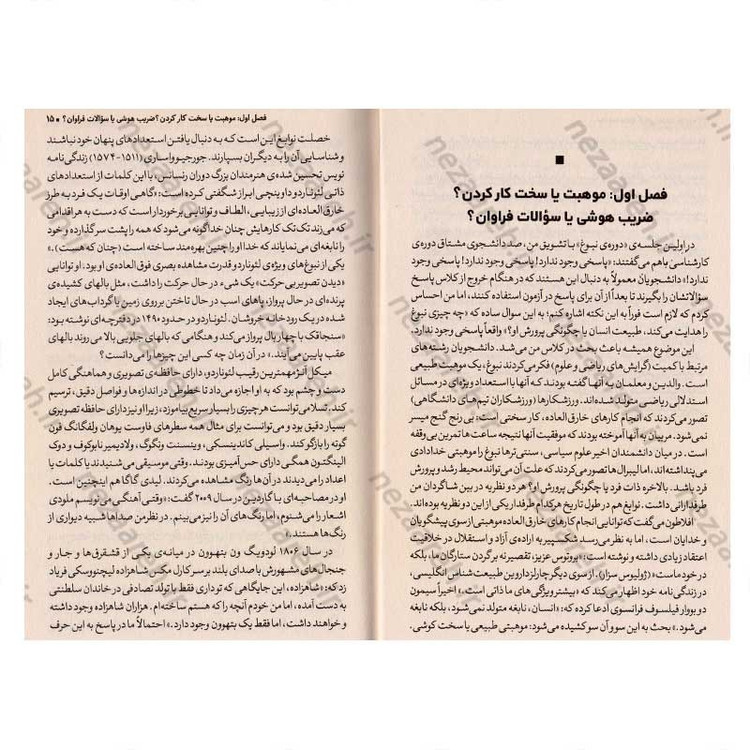 فصل اول: موهبت یا سخت کار کردن؟
ضریب هوشی یا سؤالات فراوان؟
در اولین جلسه‌ی «دوره‌ی نبوغ» با تشویق من، صد دانشجوی مشتاق دوره‌ی
کارشناسی با هم می‌گفتند: «پاسخی وجود ندارد! پاسخی وجود ندارد! پاسخی وجود
ندارد!» دانشجویان معمولاً به دنبال این هستند که در هنگام خروج از کلاس پاسخ
سؤالاتشان را بگیرند تا بعداً از آن برای پاسخ در آزمون استفاده کنند، اما من احساس
کردم که لازم است فوراً به این نکته اشاره کنم. به این سوال ساده که «چه چیزی نبوغ
را هدایت می‌کند، طبیعت انسان یا چگونگی پرورش او؟» واقعاً پاسخی وجود ندارد.
این موضوع همیشه باعث بحث در کلاس من می‌شود. دانشجویان رشته‌های
مرتبط با کمیت (گرایش‌های ریاضی و علوم) فکر می‌کردند نبوغ، یک موهبت طبیعی
است. والدین و معلمان به آنها گفته بودند که آنها با استعداد ویژه‌ای در مسائل
استدلالی ریاضی متولد شده‌اند. ورزشکارها (ورزشکاران تیم‌های دانشگاهی)
تصور می‌کردند که انجام کارهای خارق العاده، کار سختی است: بی رنج گنج میسر
نمی‌شود. مربیان به آنها آموخته بودند که موفقیت آنها نتیجه ساعت‌ها تمرین بی‌وقفه
است. در میان دانشمندان اخیر علوم سیاسی، سنتی‌ترها نبوغ را موهبتی خدادادی
می‌پنداشته‌اند، اما لیبرال‌ها تصور می‌کردند که علت آن می‌تواند محیط رشد و پرورش
فرد باشد. بالاخره ذات فرد یا چگونگی پرورش او؟ هر دو نظریه در بین شاگردان من
طرفداری داشت. نوابغ هم در طول تاریخ هر کدام طرفدار یکی از این دو نظریه بوده‌اند.
افلاطون می‌گفت که توانایی انجام کارهای خارق العاده، موهبتی از سوی پیشگویان
و خدایان است، اما به نظر می‌رسد شکسپیر به اراده‌ی آزاد و استقلال در خلاقیت
اعتقاد زیادی داشته و نوشته است: «بروتوس عزیز، تقصیر نه بر گردن ستارگان ما، بلکه
در خود ماست» (ژولیوس سزار). از سوی دیگر چارلز داروین طبیعت‌شناس انگلیسی،
در زندگی نامه خود اظهار می‌کند که «بیشتر ویژگی‌های ما ذاتی است.» اخیراً سیمون
دو بووار فیلسوف فرانسوی ادعا کرده که «انسان، نابغه متولد نمی‌شود، بلکه نابغه
می‌شود.» بحث به این سو و آن سو کشیده می‌شود: موهبتی طبیعی یا سخت کوشی.
فصل اول: موهبت یا سخت کار کردن؟ ضریب هوشی یا سؤالات فراوان؟ ■ ۱۵
خصلت نوابغ این است که به دنبال یافتن استعدادهای پنهان خود نباشند
و شناسایی آن را به دیگران بسپارند. جورجیو واساری (۱۵۱۱-۱۵۷۴) زندگی نامه
نویس تحسین شده‌ی هنرمندان بزرگ دوران رنسانس، با این کلمات از استعدادهای
ذاتی لئوناردو داوینچی ابراز شگفتی کرده است: «گاهی اوقات یک فرد به طرز
خارق العاده‌ای از زیبایی، الطاف و توانایی برخوردار است که دست به هر اقدامی
که می‌زند تک تک کارهایش چنان خداگونه می‌شود که همه را پشت سر گذارده و خود
را نابغه‌ای می‌نمایاند که خدا او را چنین بهره‌مند ساخته است (چنان که هست).»
یکی از نبوغ‌های ویژه‌ی لئوناردو قدرت مشاهده بصری فوق العاده‌ی او بود: او توانایی
«دیدن تصویر بی حرکت» یک شیء در حال حرکت را داشت، مثل بالهای کشیده‌ی
پرنده‌ای در حال پرواز، پاهای اسب در حال تاختن بر روی زمین یا گرداب‌های ایجاد
شده در یک رودخانه خروشان. لئوناردو در حدود ۱۴۹۰ در دفترچه‌ای نوشته بود:
«سنجاقک با چهار بال پرواز می‌کند و هنگامی که بالهای جلویی بالا می‌روند بالهای
عقب پایین می‌آیند.» در آن زمان چه کسی این چیزها را می‌دانست؟
میکل آنژ مهمترین رقیب لئوناردو، دارای حافظه‌ی تصویری و هماهنگی کامل
دست و چشم بود که به او اجازه می‌داد تا خطوطی در اندازه‌ها و فواصل دقیق، ترسیم
کند. تسلا می‌توانست هر چیزی را بسیار سریع بیاموزد، زیرا او نیز دارای حافظه تصویری
بسیار دقیق بود و می‌توانست برای مثال همه سطرهای فاوست یوهان ولفگانگ فون
گوته را بازگو کند. واسیلی کاندینسکی، وینسنت ونگوگ، ولادیمیر نابوکوف و دوک
الینگتون همگی دارای حس آمیزی بودند. وقتی موسیقی می‌شنیدند یا کلمات یا
اعداد را می‌دیدند در آن‌ها رنگ مشاهده می‌کردند. لیدی گاگا هم اینچنین است.
او در مصاحبه‌ای با گاردین در سال ۲۰۰۹ گفت: «وقتی آهنگی می‌نویسم ملودی
اشعار را می‌شنوم، اما رنگ‌های آن را نیز می‌بینم. در نظر من صداها شبیه دیواری از
رنگ‌ها هستند.»
در سال ۱۸۰۶ لودویگ ون بتهوون در میانه‌ی یکی از قشقرق‌ها و جار و
جنجال‌های مشهورش با صدای بلند بر سر کارل مکس شاهزاده لیچنوسکی فریاد
زد که: «شاهزاده، این جایگاهی که تو داری فقط با تولد تصادفی در خاندان سلطنتی
به دست آمده، اما من خودم آنچه را که هستم ساخته‌ام. هزاران شاهزاده وجود داشته
و خواهند داشت، اما فقط یک بتهوون وجود دارد.» احتمالاً ما در پاسخ به این حرف
nezaareh.ir